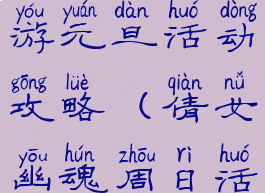 yóu yuán dàn huó dòng
游元旦活动
gōng lüè qiàn nǚ
攻略（倩女
yōu hún zhōu rì huó
幽魂周日活